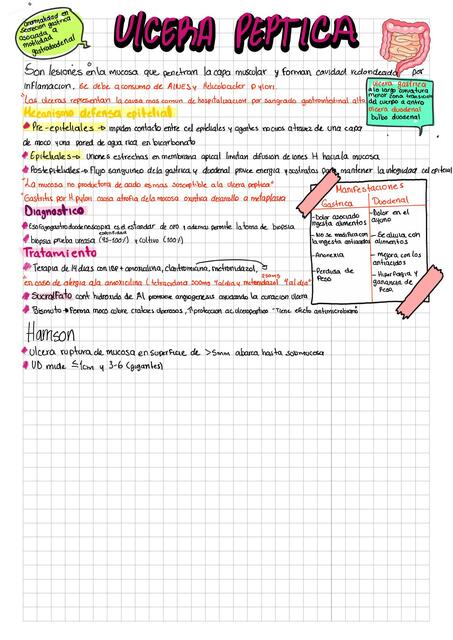 Anormalidad en
secreción gástrica
asociada a
motilidad
gastroduodenal
ULCERA PEPTICA
Son lesiones en la mucosa que penetran la capa muscular y forman cavidad redondeada por
inflamacion, Se debe a consumo de AINES y Helicobacter pylori.
"Las ulceras representan la causa mas comun de hospitalizacion por sangrado gastrointestinal alto
ulcera gastrica
a lo largo curvatura
menor zona transicion
del cuerpo a antro
ulcera duodenal
bulbo duodenal
Mecanismo defensa epitelial
Pre-epiteliales → impiden contacto entre cel epiteliales y agentes nocivos atraves de una capa
de moco y una pared de agua rica en bicarbonato
Epiteliales → Uniones estrechas en membrana apical limitan difusion de iones H hacia la mucosa
Postepiteliales → Flujo sanguineo de la gastrica y duodenal provee energia y sustratos para mantener la integridad cel epitelial
"La mucosa no productora de acido es mas susceptible a la ulcera peptica"
"Gastritis por H. pylori causa atrofia de la mucosa oxintica desarrollo a metaplasia
Diagnostico
Esofagogastroduodenoscopia es el estandar de oro y ademas permite la toma de biopsia
biopsia prueba ureasa (95-100%) y cultivo (100%)
Tratamiento
Terapia de 14 dias con IBP + amoxicilina, claritromicina, metronidazol,
250mg
en caso de alergia a la amoxicilina (tetraciclina 500mg 4 al dia y metronidazol 4 al dia"
Sucralfato cont hidroxido de Al promueve angiogenesis ayudando la curacion ulcera
Bismuto → Forma moco sobre crateres ulcerosos, ↑ proteccion acido peptica "Tiene efecto antimicrobiano
Manifestaciones
Gastrica
Duodenal
-Dolor asociado
ingesta alimentos
- No se modifica con
la ingesta antiacidos
- Anorexia
- Perdida de
Peso
- Dolor en el
ayuno
- Se alivia con
alimentos
- mejora con los
antiacidos
- Hiperfagia y
ganancia de
Peso
Harrison
Ulcera ruptura de mucosa en superficie de >5mm abarca hasta submucosa
UD mide ≤1cm y 3-6 (gigantes)